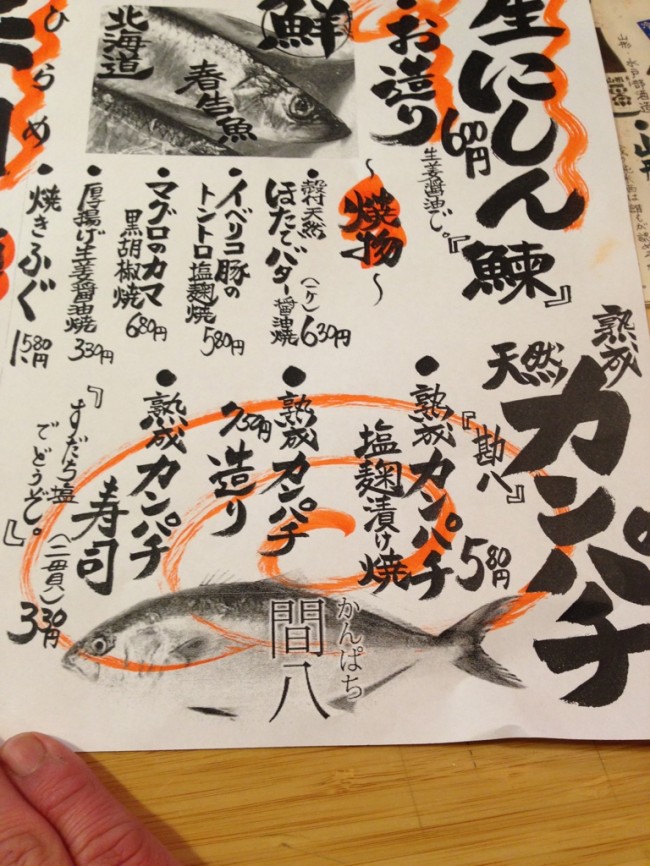 生にしん『鰊』
・お造り
600円
生姜醤油で。
鮮
北海道
春告魚
ひらめ
〜焼物〜
・殻付天然
ほたてバター醤油焼
(一ケ)630円
・イベリコ豚の
トントロ塩麹焼
580円
・マグロのカマ
黒胡椒焼
680円
・厚揚げ生姜醤油焼
330円
・焼きふぐ
1,580円
熟成
天然カンパチ
『勘八』
・熟成カンパチ
塩麹漬け焼
580円
・熟成カンパチ
造り
730円
・熟成カンパチ
寿司
(二貫)
330円
『すだち塩
でどうぞ。』
かんぱち
間八